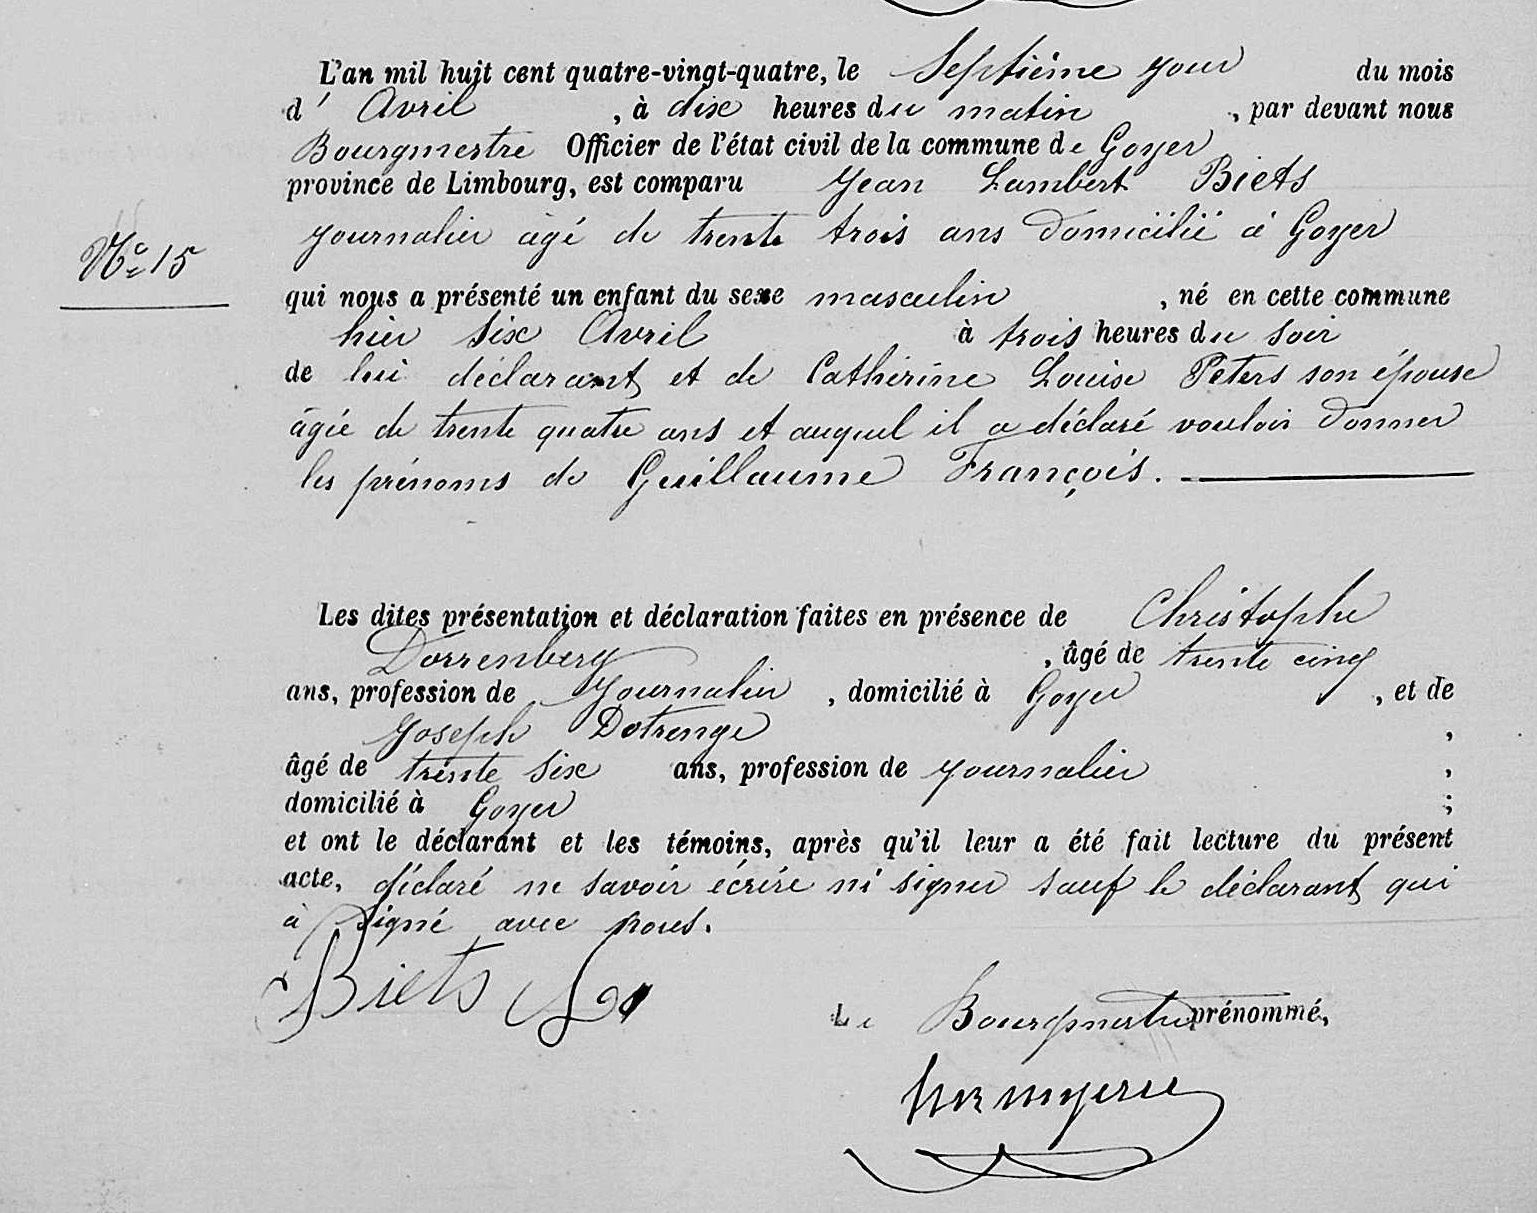 L'an mil huit cent quatre-vingt-quatre, le Septième jour du mois
d' Avril , à dix heures du matin , par devant nous
Bourgmestre Officier de l'état civil de la commune de Goyer
province de Limbourg, est comparu Jean Lambert Biets
journalier âgé de trente trois ans domicilié à Goyer
No 15
qui nous a présenté un enfant du sexe masculin , né en cette commune
hier six Avril à trois heures du soir
de lui déclarant et de Catherine Louise Peters son épouse
âgée de trente quatre ans et auquel il a déclaré vouloir donner
les prénoms de Guillaume François.
Les dites présentation et déclaration faites en présence de Christophe
Dorrenberg , âgé de trente cinq
ans, profession de Journalier , domicilié à Goyer , et de
Joseph Dotrenge ,
âgé de trente six ans, profession de journalier ,
domicilié à Goyer ;
et ont le déclarant et les témoins, après qu'il leur a été fait lecture du présent
acte, déclaré ne savoir écrire ni signer sauf le déclarant qui
à signé avec nous.
Biets
Le Bourgmestre prénommé,